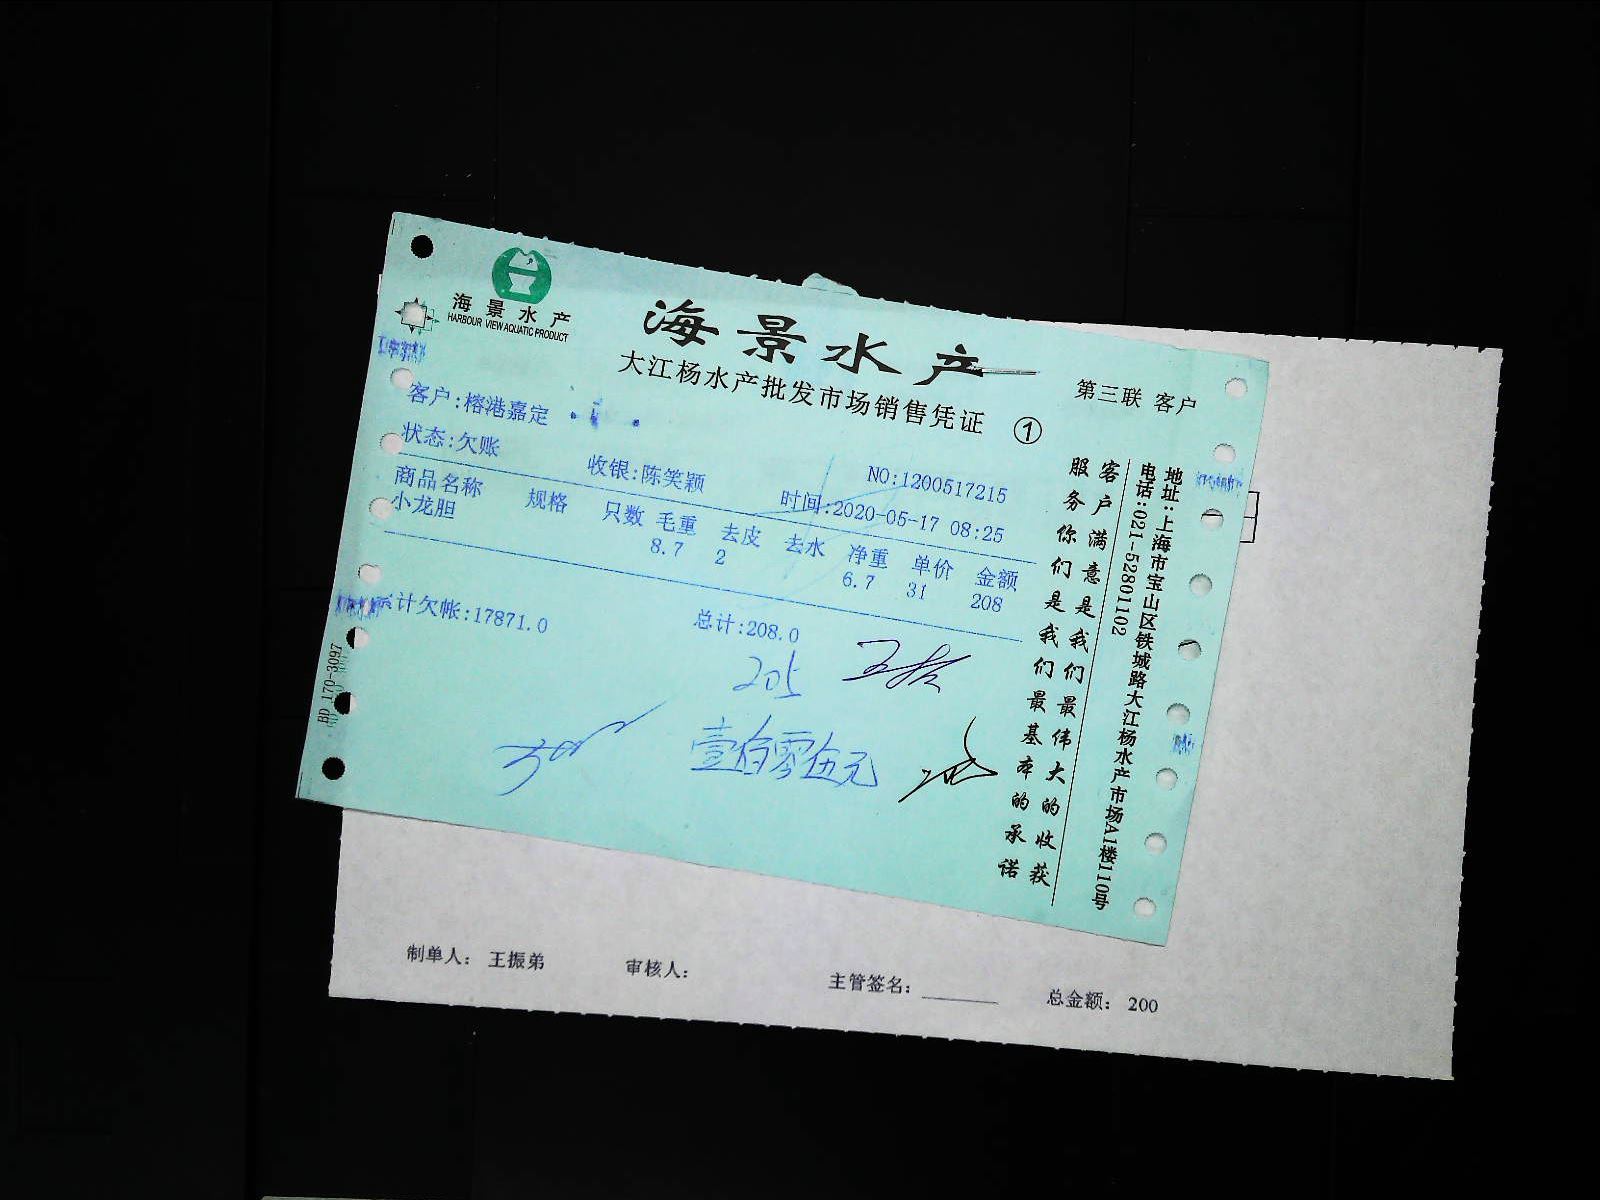 海景水产
HARBOUR VIEW AQUATIC PRODUCT
海景水产
大江杨水产批发市场销售凭证 ①
第三联 客户
客户:榕港嘉定
状态:欠账
收银:陈笑颖
NO:1200517215
时间:2020-05-17 08:25
商品名称 规格 只数 毛重 去皮 去水 净重 单价 金额
小龙胆 8.7 2 6.7 31 208
计欠帐:17871.0
总计:208.0
205
壹佰零伍元
客户满意是我们最伟大的收获
服务你们是我们最基本的承诺
地址:上海市宝山区铁城路大江杨水产市场A1楼110号
电话:021-52801102
BD 170-3097
制单人: 王振弟
审核人:
主管签名:
总金额: 200